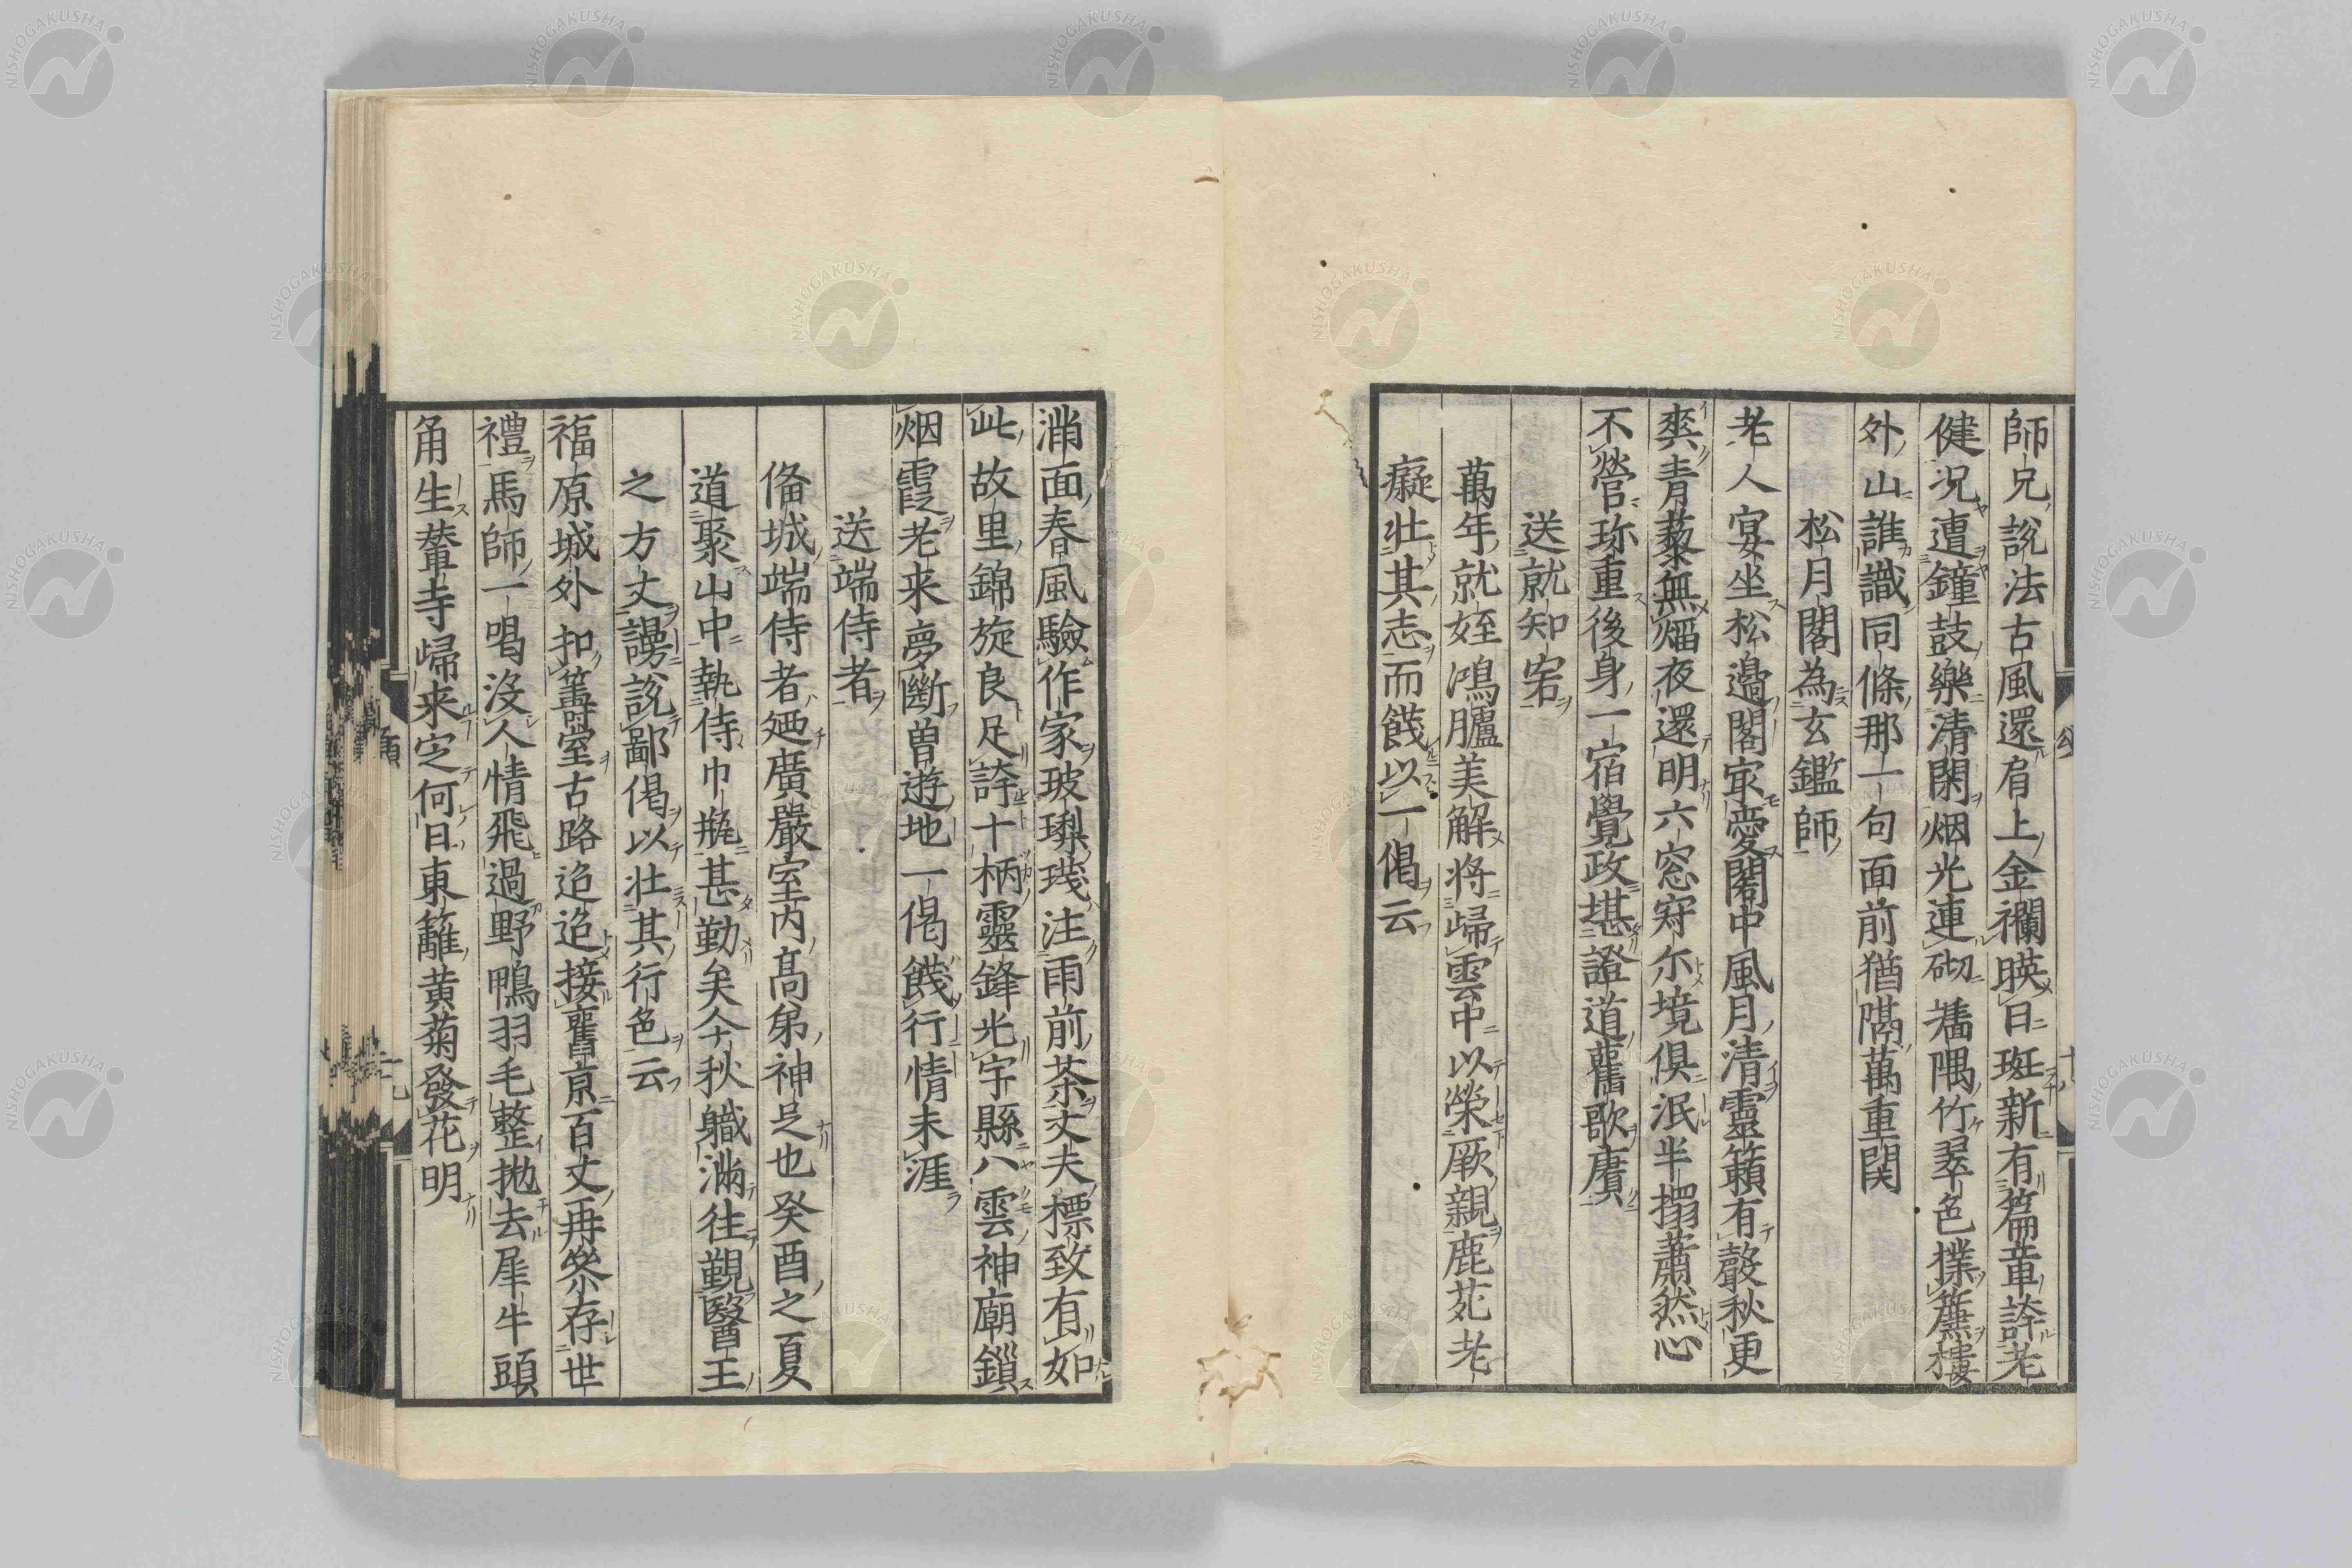 師兄説法古風還肩上金襴暎日斑新有篇章誇老
健況遭鐘鼓樂清閑烟光連砌墻隅竹翠色撲簾樓
外山誰識同條那一句面前猶隔萬重関
松月閣為玄鑑師
老人宴坐松邉閣㝡愛閣中風月清靈籟有聲秋更
爽青藜無熖夜還明六窓寂尓境俱泯半榻蕭然心
不營珎重後身一宿覺政堪證道舊歌賡
送就知客
萬年就姪鴻臚美解将歸雲中以榮厥親鹿苑老
癡壮其志而餞以一偈云
満面春風驗作家玻瓈琖注雨前茶丈夫標致有如
此故里錦旋良足誇十柄靈鋒光宇縣八雲神廟鎖
烟霞老来夢斷曽遊地一偈餞行情未涯
送端侍者
俻城端侍者廼廣嚴室内高弟神足也癸酉之夏
道聚山中執侍巾瓶甚勤矣今秋職滿往觀醫王
之方丈謾説鄙偈以壮其行色云
福原城外扣籌室古路迢迢接舊京百丈再叅存世
禮馬師一喝没人情飛過野鴨羽毛整抛去犀牛頭
角生輦寺歸来定何日東籬黄菊發花明